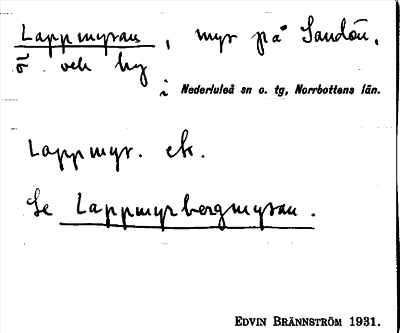 Lappmyran, myr på Sandön,
ö. och by
i Nederluleå sn o. tg, Norrbottens län.
Lappmyr. ek.
Se Lappmyrbergmyran.
EDVIN BRÄNNSTRÖM 1931.